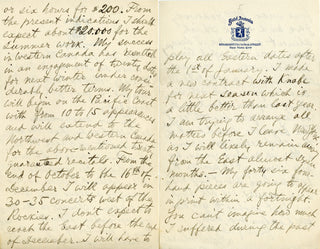 or six hours for $200. From
the present indications, I shall
expect about $20.000 for the
summer work. My success
in Western Canada has resulted
in an engagement of twenty dates
for next winter under consi-
derably better terms. My tour
will begin on the Pacific Coast
with from 10 to 15 appearances
and will extend through
Northwest and Western Canada
for the above-mentioned twenty
guaranteed recitals. From the
end of October to the 16th of
December I will appear in
30-35 concerts west of the
Rockies. I don't expect to
reach the East before the end
of December. I will have to
Hotel
New York City
play all Eastern dates after
the 1st of January. I made
a new contract with Knabe
for next season which is
a little better than last year.
I am trying to arrange all
matters before I leave
as I will likely remain away
from the East almost seven
months. – My forty six four-
hand pieces are going to appear
in print within a fortnight.
You can't imagine how much
I suffered during the past